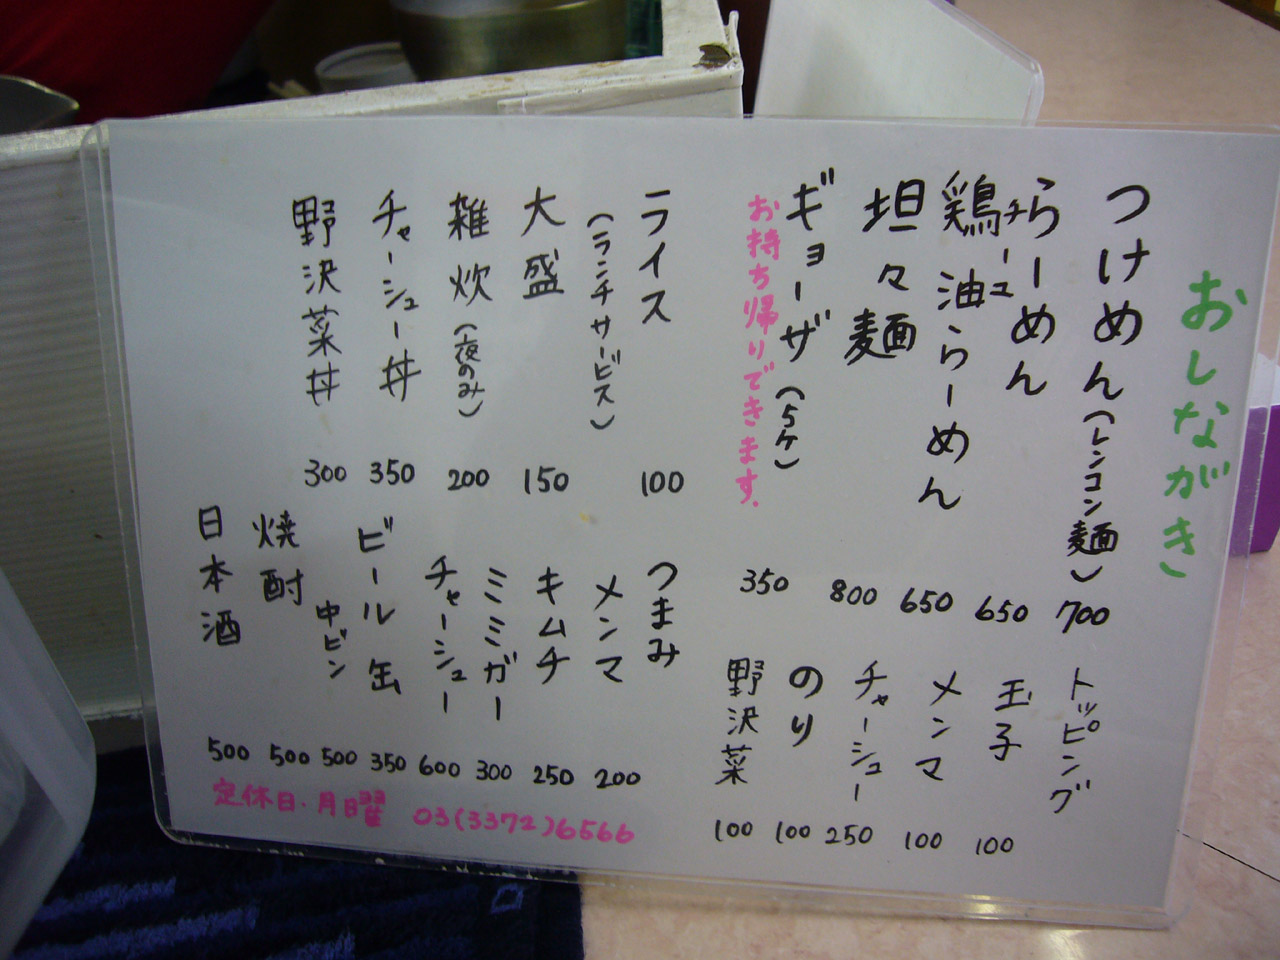 おしながき
つけめん(レンコン麺) 700
らーめん 650
チャーシュー
鶏油らーめん 650
坦々麺 800
ギョーザ(5ケ) 350
お持ち帰りできます.
トッピング
玉子 100
メンマ 100
チャーシュー 250
のり 100
野沢菜 100
ライス 100
(ランチサービス)
大盛 150
雑炊(夜のみ) 200
チャーシュー丼 350
野沢菜丼 300
つまみ
メンマ 200
キムチ 250
ミミガー 300
チャーシュー 600
ビール 缶 350
中ビン 500
焼酎 500
日本酒 500
定休日.月日曜 03(3372)6566